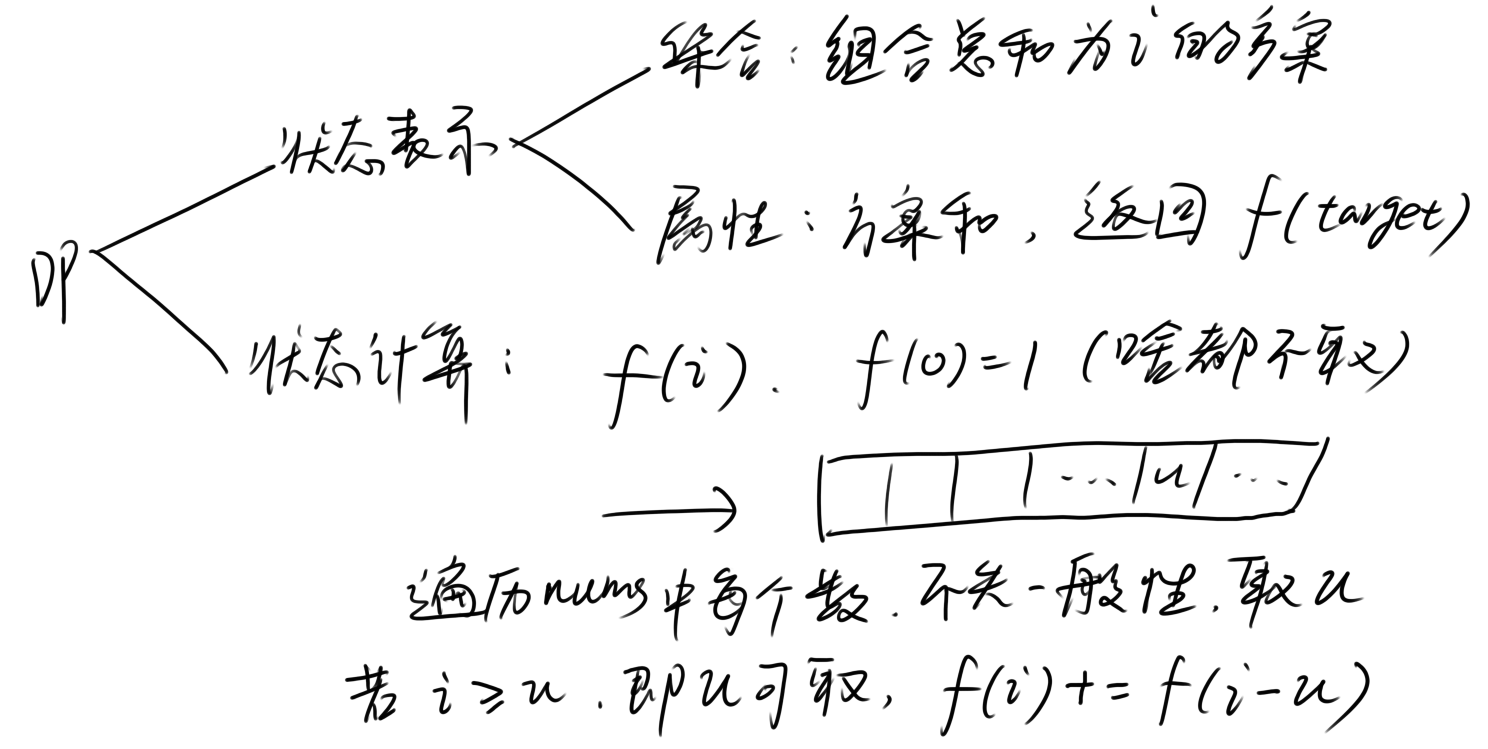 综合：组合总和为i的方案
状态表示
属性：方案和，返回 f(target)
DP
状态计算： f(i). f(0)=1 (啥都不取)
... u ...
遍历nums中每个数.不失一般性.取u
若 i≥u .即u可取, f(i)+=f(i-u)